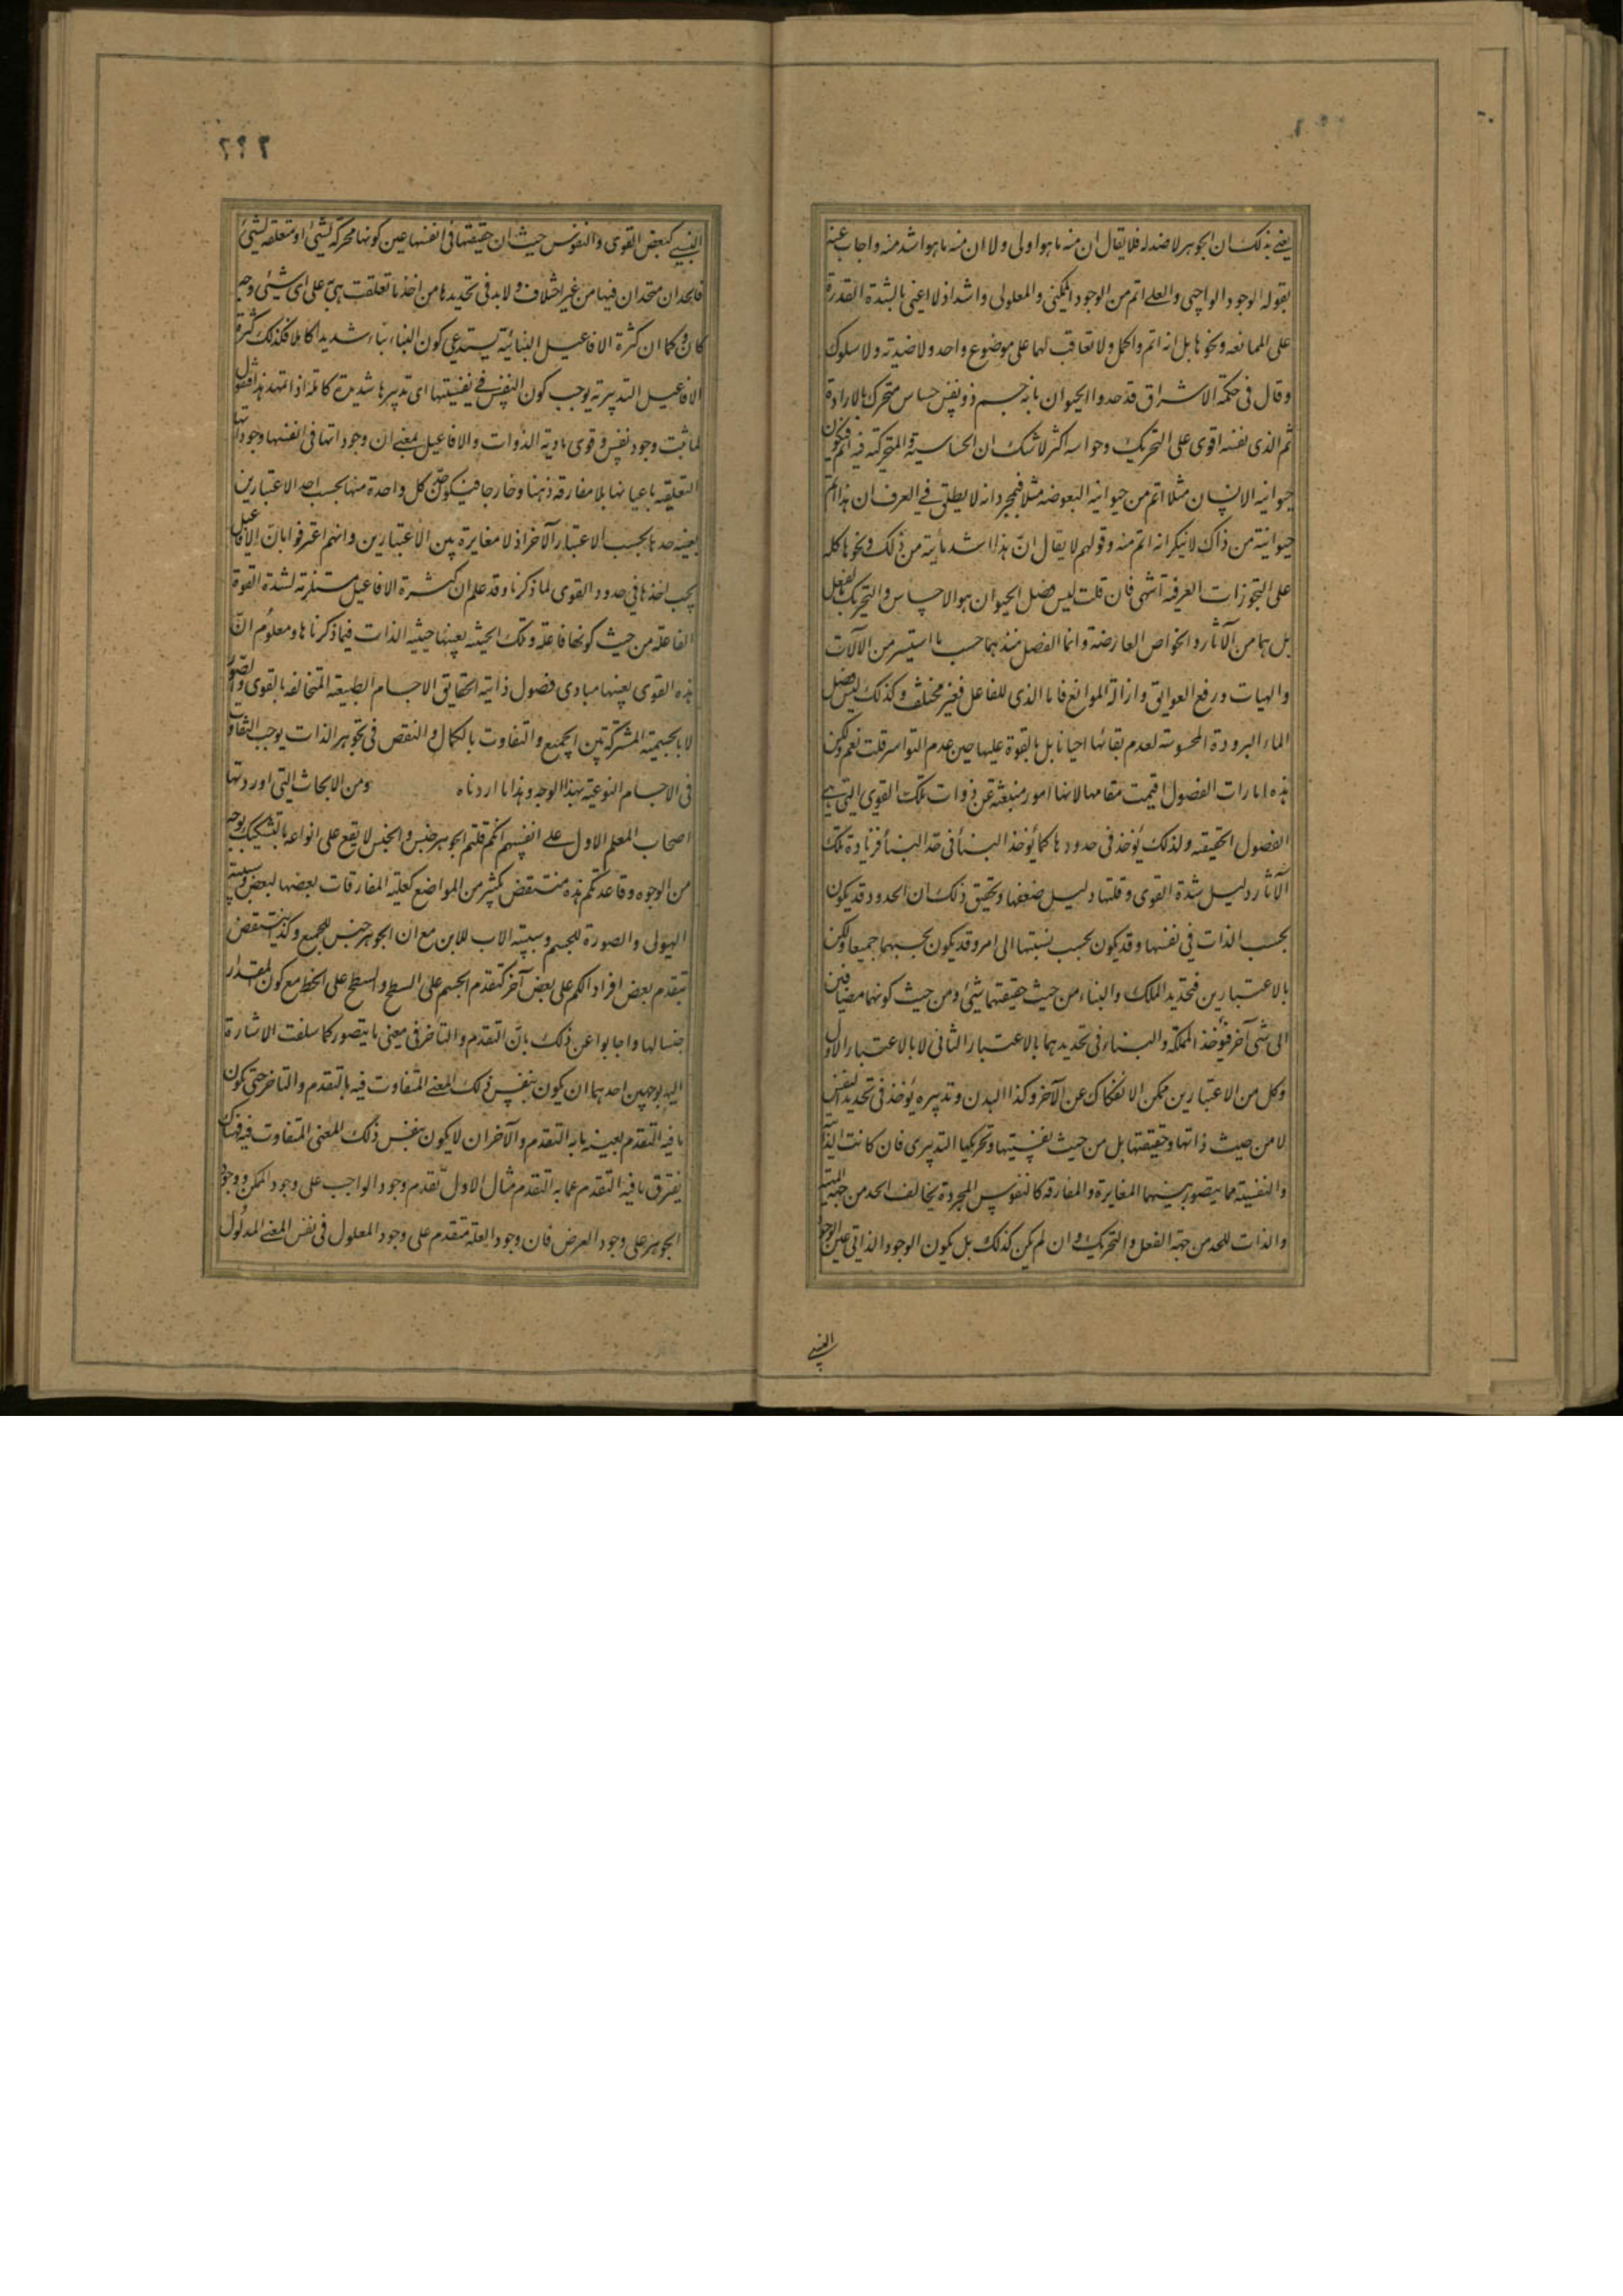 يعنى بذلك ان الجوهر لا ضد له فلا يقال ان منه ما هو اولى ولا ان منه ما هو اشد منه واجاب عنه
بقوله الوجود الواجبى والعلى اتم من الوجود الممكنى والمعلولى واشد اذ لا اعنى بالشدة القدرة
على الممانعه ونحوها بل انه اتم واكمل ولا تعاقب لها على موضوع واحد ولا ضدية ولا سلوك
وقال فى حكمة الاشراق قد حدوا الحيوان بانه جسم ذو نفس حساس متحرك بالارادة
ثم الذى نفسه اقوى على التحريك وحواسه اكثر لا شك ان الحساسية والمتحركية فيه اتم فيكون
حيوانية الانسان مثلا اتم من حيوانية البعوضه مثلا فبمجرد انه لا يطلق فى العرف ان هذا اتم
حيوانية من ذاك لا ينكر انه اتم منه وقولهم لا يقال انّ هذا اشد مائية من ذلك ونحوها كله
على التجوزات العرفية انتهى فان قلت ليس فصل الحيوان هو الاحساس والتحريك بالفعل
بل هما من الآثار والخواص العارضة وانما الفصل مبدئهما حسب ما استيسر من الآلات
والهيات ورفع العوايق وازالة الموانع فاما الذى للفاعل فغير مختلف وكذلك ليس فصل
الماء البرودة المحسوسة لعدم بقائها احيانا بل بالقوة عليها حين عدم القواسر قلت نعم ولكن
هذه امارات الفصول اقيمت مقامها لانها امور منبعثة عن ذوات تلك القوى التى هى
الفصول الحقيقية ولذلك يؤخذ فى حدودها كما يؤخذ البنأ فى حد البنأ فزيادة تلك
الآثار دليل شدة القوى وقلتها دليل ضعفها وتحقيق ذلك ان الحدود قد يكون
بحسب الذات فى نفسها وقد يكون بحسب نسبتها الى امر وقد يكون بحسبهما جميعا ولكن
بالاعتبارين فتحديد الملك والبناء من حيث حقيقتهما شئ ومن حيث كونهما مضافين
الى شى آخر فيؤخذ المملكة والبناء فى تحديدهما بالاعتبار الثانى لا بالاعتبار الاول
وكل من الاعتبارين ممكن الانفكاك عن الآخر وكذا البدن وتدبيره يؤخذ فى تحديد النفس
لا من حيث ذاتها وحقيقتها بل من حيث نفسيتها وتحريكها التدبيرى فان كانت الذات
والنفسية مما يتصور بينهما المغايرة والمفارقة كالنفوس المجردة يخالف الحد من جهة الماهية
والذات للحد من جهة الفعل والتحريك وان لم يكن كذلك بل يكون الوجود الذاتى عين الوجود
النسبى
٢٩٢
النسبى كبعض القوى والنفوس حيث ان حقيقتها فى انفسها عين كونها محركة لشئ او متعلقة لشئ
فالحدان متحدان فيها من غير اختلاف ولا بد فى تحديدها من اخذ ما تعلقت هى على اى شئ وجه
كان وكما ان كثرة الافاعيل البنائية يستدعى كون البناء بناء شديدا كاملا فكذلك كثرة
الافاعيل التدبيرية يوجب كون النفس فى نفسيتها اى تدبيرها شديدة كاملة اذا تمهد هذا فنقول
لما ثبت وجود نفس وقوى مادية الذوات والافاعيل بمعنى ان وجوداتها فى انفسها وجوداتها
التعلقية باعيانها بلا مفارقة ذهنا وخارجا فيكون حدّ كل واحدة منها بحسب احد الاعتبارين
بعينه حدها بحسب الاعتبار الآخر اذ لا مغايرة بين الاعتبارين وانهم اعترفوا بانّ الافاعيل
يجب اخذها فى حدود القوى لما ذكرنا وقد علم ان كثرة الافاعيل مستلزمة لشدة القوة
الفاعلة من حيث كونها فاعلة وتلك الحيثية بعينها حيثية الذات فيما ذكرناها ومعلوم انّ
هذه القوى بعينها مبادى فصول ذاتية لحقايق الاجسام الطبيعية المتخالفه بالقوى والصور
لا بالجسمية المشتركة بين الجميع والتفاوت بالكمال والنقص فى تجوهر الذات يوجب التفاوت
فى الاجسام النوعية بهذا الوجه وهذا ما اردناه ومن الابحاث التى اوردتها
اصحاب المعلم الاول على انفسهم انكم قلتم الجوهر جنس والجنس لا يقع على انواعه بالتشكيك بوجه
من الوجوه وقاعدتكم هذه منتقض بكثير من المواضع كعلية المفارقات بعضها لبعض وسببية
الهيولى والصورة للجسم وسببية الاب للابن مع ان الجوهر جنس للجميع وكذا ينتقض
بتقدم بعض افراد الكم على بعض آخر كتقدم الجسم على السطح والسطح على الخط مع كون المقدار
جنسا لها واجابوا عن ذلك بانّ التقدم والتأخر فى معنى ما يتصور كما سلفت الاشارة
اليه بوجهين احدهما ان يكون بنفس ذلك المعنى المتفاوت فيه بالتقدم والتاخر حتى يكون
ما فيه التقدم بعينه ما به التقدم والآخر ان لا يكون بنفس ذلك المعنى المتفاوت فيه فهناك
يفترق ما فيه التقدم عما به التقدم مثال الاول تقدم وجود الواجب على وجود الممكن ووجود
الجوهر على وجود العرض فان وجود العلة متقدم على وجود المعلول فى نفس المعنى المدلول